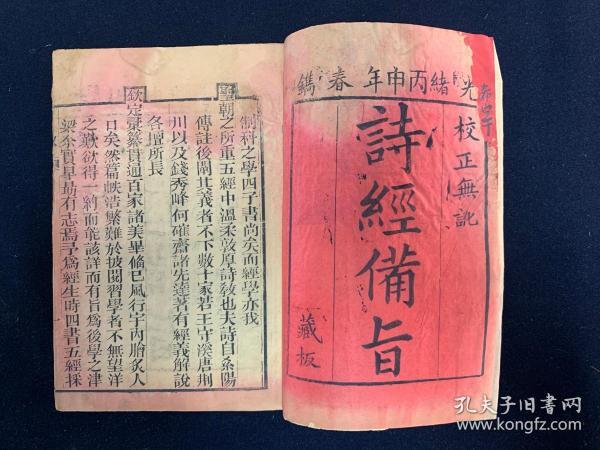 光緒丙申年春鐫
校正無訛
詩經備旨
藏板
制科之學四子書尚矣而經學亦我
聖朝之所重五經中溫柔敦厚詩敎也夫詩自紫陽
傳註後闡其義者不下數十家若王守溪唐荆
川以及錢秀峰何確齋諸先達著有經義解說
各擅所長
欽定彙纂貫通百家諸美畢備已風行宇內膾炙人
口矣然篇帙浩繁難於披閱習學者不無望洋
之歎欲得一約而能該詳而有旨爲後學之津
梁夲實早勗有志焉予爲經生時四書五經採
孔夫子旧书网
www.kongfz.com